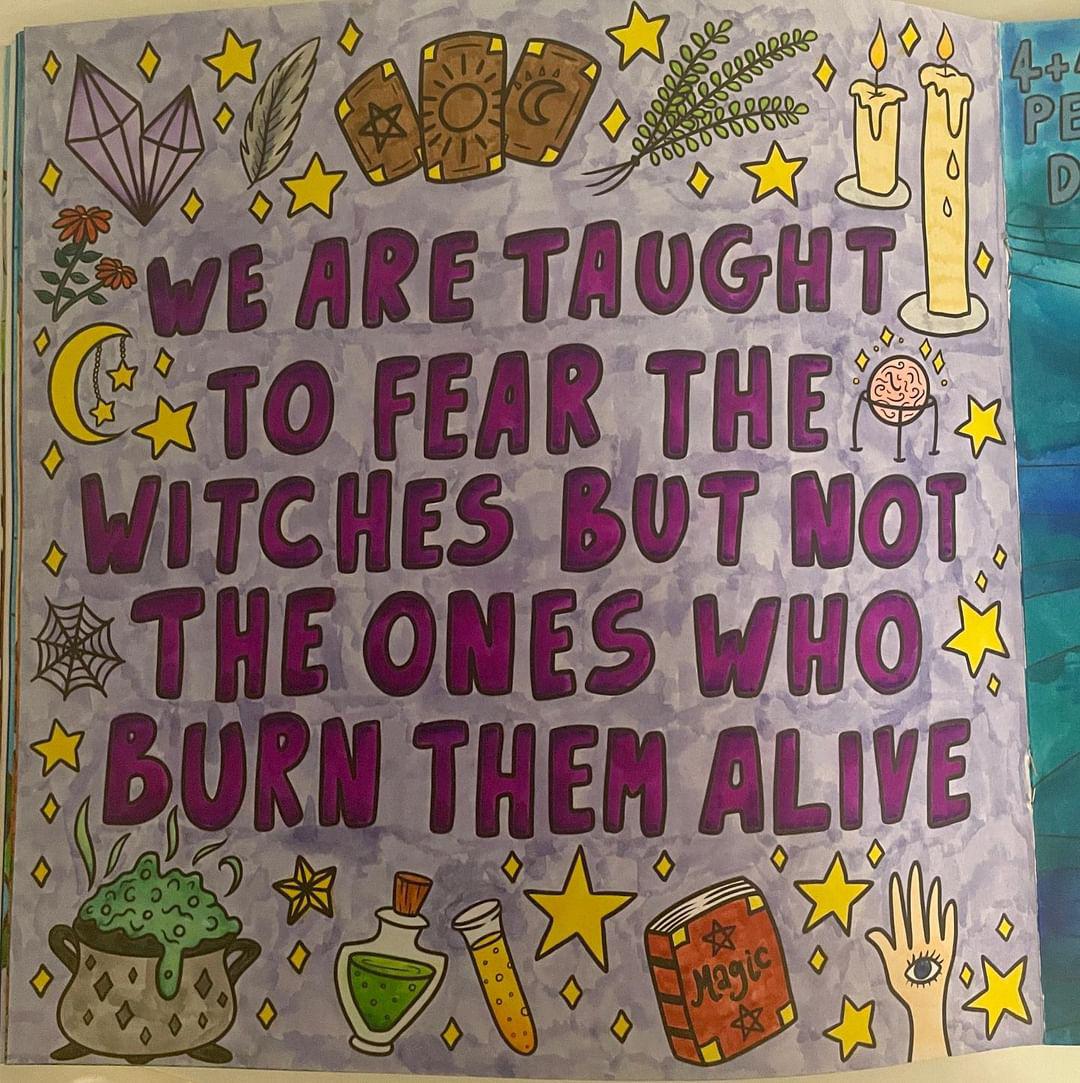 WE ARE TAUGHT
TO FEAR THE
WITCHES BUT NOT
THE ONES WHO
BURN THEM ALIVE
Magic